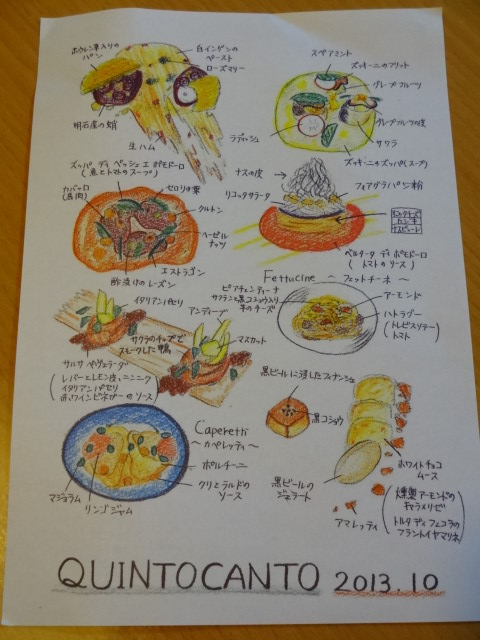 ホウレン草入りの
パン
白インゲンの
ペースト
ローズマリー
明石産の蛸
生ハム
スペアミント
ズッキーニのフリット
グレープフルーツ
グレープフルーツの皮
ラディッシュ
サワラ
ズッキーニのズッパ(スープ)
ズッパ ディ ペッシェ エ ポモドーロ
(魚とトマトのスープ)
カバッロ
(馬肉)
セロリの葉
クルトン
ヘーゼル
ナッツ
エストラゴン
酢漬けのレーズン
ナスの皮
リコッタサラータ
フィアグラパン粉
ベルタータ ディ ポモドーロ
(トマトのソース)
Fettucine ~フェットチーネ~
ピアチェンティーナ
サフランと黒コショウ入り
羊のチーズ
アーモンド
ハトラグー
(トレビスソテー)
トマト
イタリアンパセリ
アンディーブ
サクラのチップで
スモークした鴨
マスカット
サルサ ペヴェラーダ
(レバーとレモン皮、ニンニク
イタリアンパセリ
赤ワインビネガーのソース)
Caperetti
~カペレッティ~
ポルチーニ
クリとラルドの
ソース
マジョラム
リンゴジャム
黒ビールに浸したフィナンシェ
黒コショウ
黒ビールの
ジェラート
ホワイトチョコ
ムース
(燻製アーモンドの
キャラメリゼ
トルタ ディ フェコラの
フラントイヤマリネ)
アマレッティ
QUINTOCANTO 2013.10